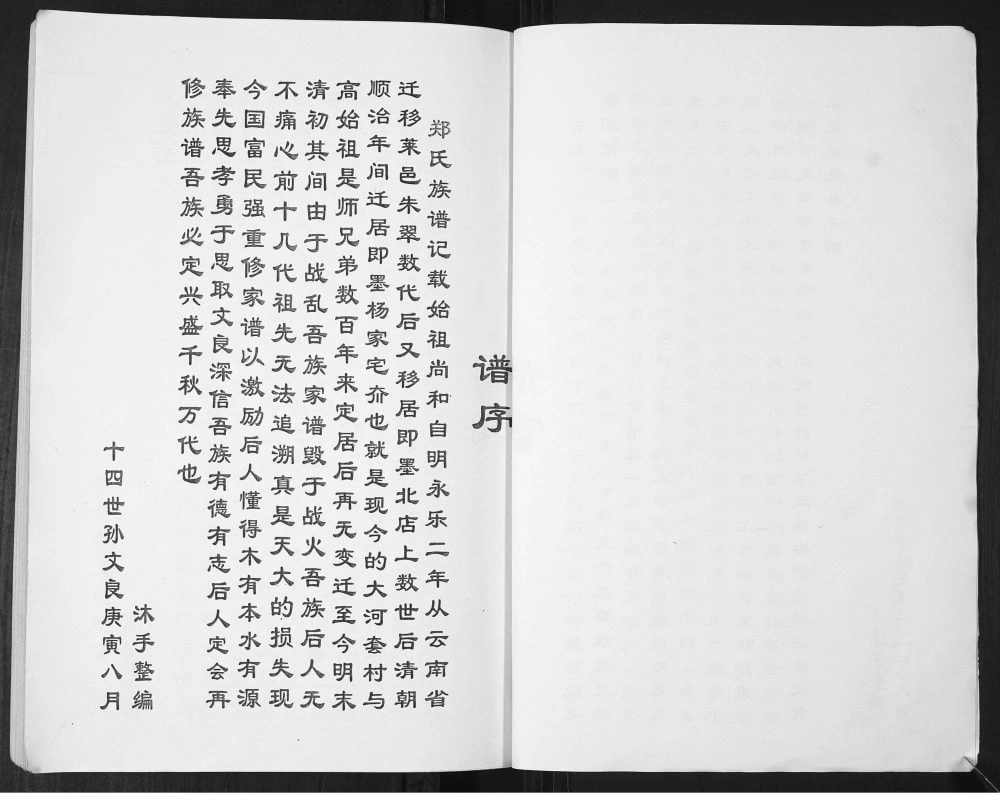 谱序
郑氏族谱记载始祖尚和自明永乐二年从云南省
迁移莱邑朱翠数代后又移居即墨北店上数世后清朝
顺治年间迁居即墨杨家宅夼也就是现今的大河套村与
高始祖是师兄弟数百年来定居后再无变迁至今明末
清初其间由于战乱吾族家谱毁于战火吾族后人无
不痛心前十几代祖先无法追溯真是天大的损失现
今国富民强重修家谱以激励后人懂得木有本水有源
奉先思孝勇于思取文良深信吾族有德有志后人定会再
修族谱吾族必定兴盛千秋万代也
沐手整编
十四世孙文良庚寅八月